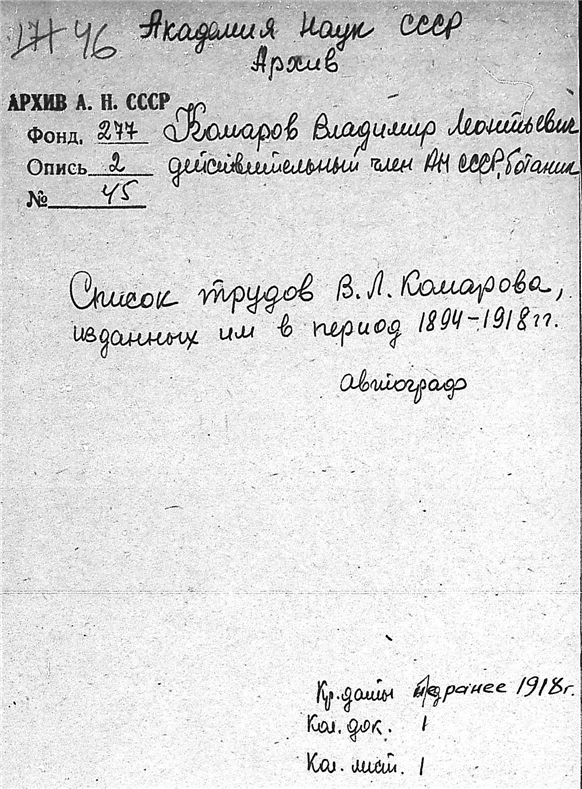 46 Академия Наук СССР
Архив
АРХИВ А. Н. СССР
Фонд. 277 Комаров Владимир Леонтьевич
Опись 2 действительный член АН СССР, ботаник
№ 45
Список трудов В. Л. Комарова,
изданных им в период 1894-1918 гг.
автограф
Кр. даты не ранее 1918 г.
Кол. док. 1
Кол. лист. 1